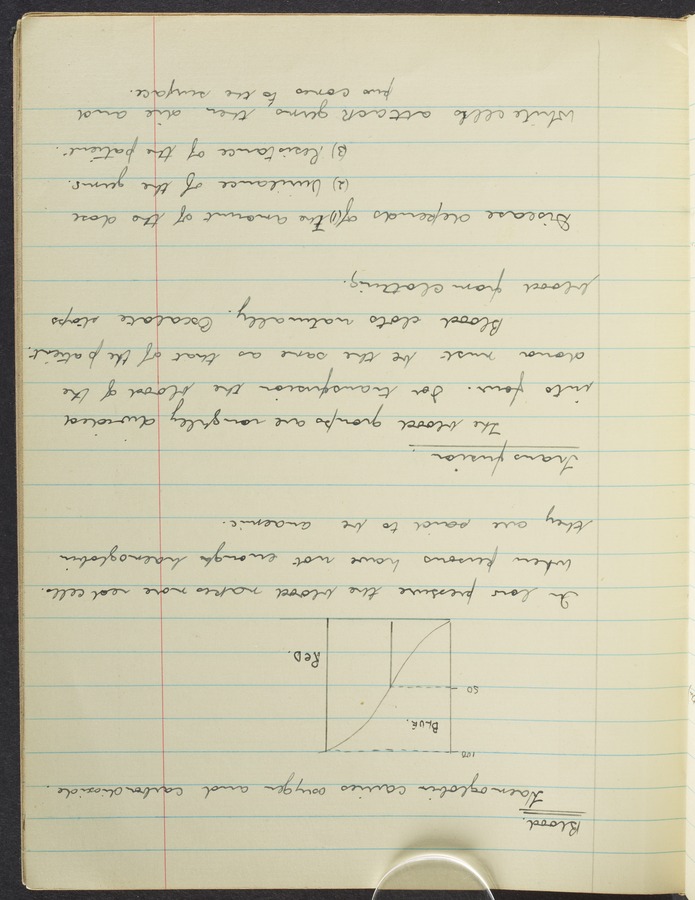 Blood.
Haemoglobin carries oxygen and carbondioxide.
100
BLUE.
50
RED.
In low pressure the blood makes more red cells.
When persons have not enough haemoglobin
they are said to be anaemic.
Transfusion
The blood groups are roughly divided
into four. For transfusion the blood of the
donor must be the same as that of the patient.
Blood clots naturally. Oxalate stops
blood from clotting.
Disease depends of (1) The amount of the dose
(2) Virulance of the germs.
(3) Resistance of the patient.
White cells attack germs then die and
pus comes to the surface.